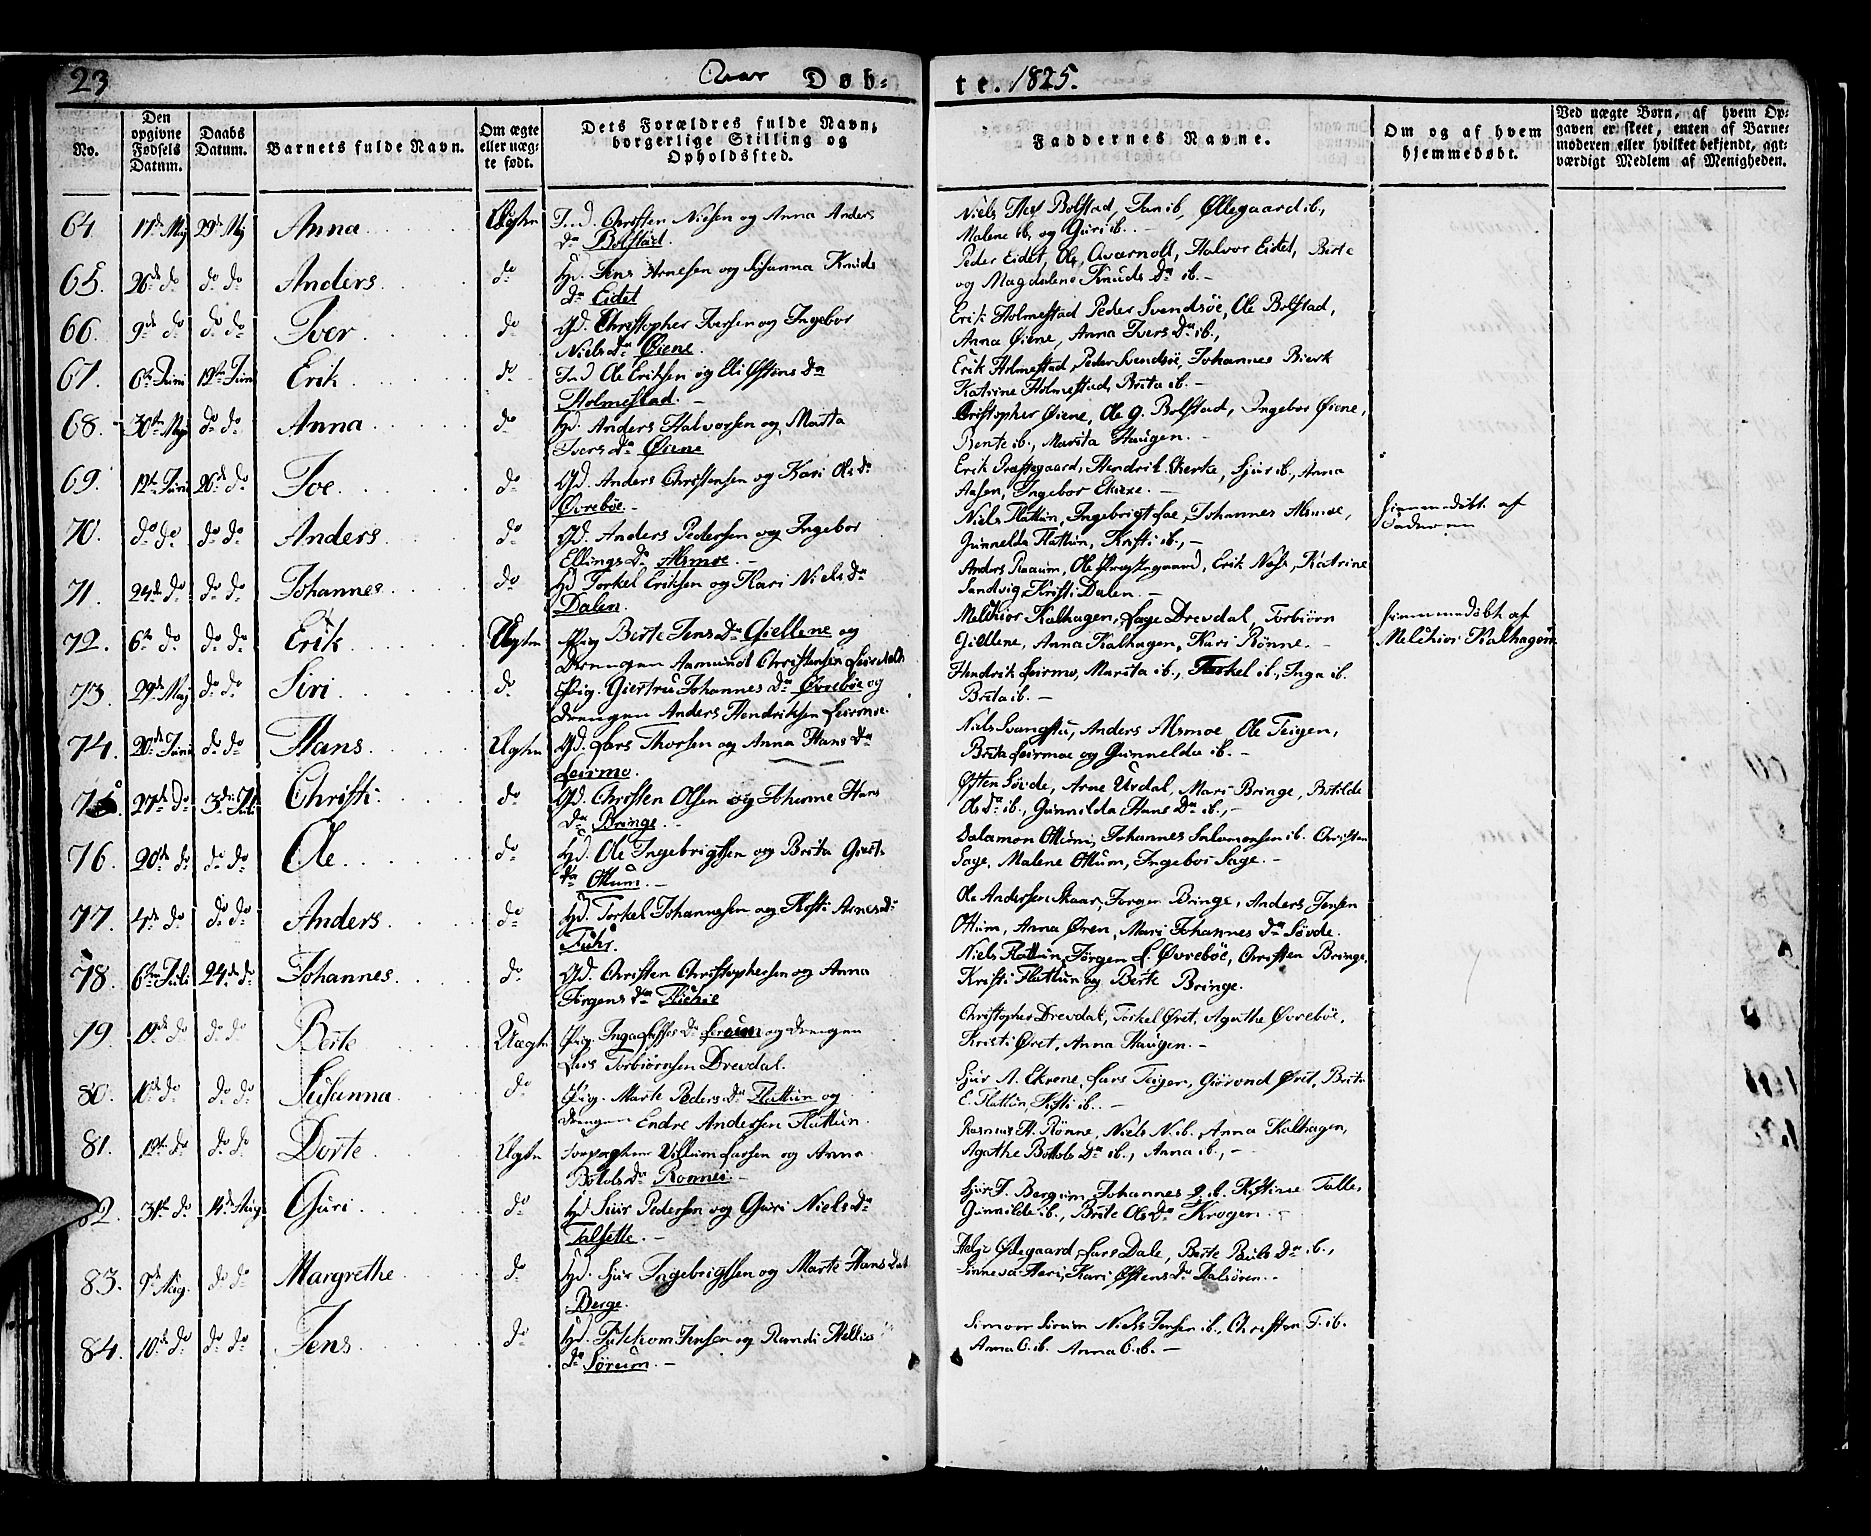 23
Aar Døb-
te. 1825.
No.
Den opgivne Fødsels Datum.
Daabs Datum.
Barnets fulde Navn.
Om ægte eller uægte født.
Dets Forældres fulde Navn, borgerlige Stilling og Opholdssted.
Faddernes Navne.
Om og af hvem hjemmedøbt.
Ved uægte Børn, af hvem Opgaven er skeet, enten af Barnemoderen eller hvilket bekjendt, agtværdigt Medlem af Menigheden.
64. 17de Maj 29de Maj Anna Ægte Ind. Christen Nielsen og Anna Anders
Da Bolstad.
Bolstad, ib, Øllegaard ib,
Malene ib, og Guri ib.
65. 26de do do do Anders do Hd. Jens Arnesen og Susanna Knuds
Da Eidet
Peder Eidet, Ole Qværnold, Halvor Eidet, Birte
og Magdalene Knuds Da ib.
66. 9de do do do Iver do Gd. Christopher Iversen og Ingebor
Niels Da Øiene.
Erik Holmestad Peder Svendsøe, Ole Bolstad,
Anna Øiene, Anna Ivers Da ib.,
67. 6te Juni 12te Juni Erik do Ind Ole Eriksen og Eli Østens Da
Holmestad.
Erik Holmestad, Peder Svendsøe, Johannes Bierk
Katrine Holmestad, Brita ib.
68. 30te Maj do do Anna do Hd. Anders Halvorsen og Marta
Ivers Da Øiene
Christopher Øiene, Ole G. Bolstad, Ingebor Øiene,
Bente ib., Marita Haugen.
69. 12te Juni 26de do Joe do Gd. Anders Christensen og Kari Ols Da
Øvrebøe.
Erik Præstegaard, Hendrik, Sjur ib, Anna
Aasen, Ingebor Ekrene.
70. do do do do Anders do Gd. Anders Pedersen og Ingebor
Ellings Da Alsmoe.
Niels Flattun, Ingebrigt, Johannes Alsmoe,
Gunnelda Flattun, Kristi ib.,
hiemmedøbt af
Faderen
71. 24de do do do Johannes do Hd Torkel Eriksen og Kari Niels Da
Dalen.
Anders Raaum, Ole Præstegaard, Erik Næss, Katrine
Sandvig, Kristi Dalen.
72. 6te do do do Erik Uægte Pig. Birte Jens Da Giellene og
Drengen Aamund Christensen
Melchior Kalhagen, Lage Drevdal, Torbiørn
Giellene, Anna Kalhagen, Kari Rønne.
hiemmedøbt af
Melchior Kalhagen
73. 29de Maj do do Siri do Pig. Giertru Johannes Da Øvrebøe og
Drengen Anders Hendriksen Leirmoe.
Hendrik Leirmo, Marita ib., Torkel ib, Inga ib.
Brita ib.
74. 20de Juni do do Hans Ægte Gd. Lars Thorsen og Anna Hans Da
Leirmo.
Niels, Anders Alsmoe Ole Teigen,
Brita Leirmoe og Gunnelda ib.
75. 27de Do 3de Juli Christi do Gd. Christen Olsen og Hans
Da Bringe.
Østen Søvde, Arne Urdal, Mari Bringe, Botilde
Ols Da ib., Gunnilda Hans Da ib.,
76. 20de do do do Ole do Hd. Ole Ingebrigtsen og Brita Giert
Da Ottum.
Salamon Ottum, Johannes Salomonsen ib. Christen
Sage, Malene Ottum, Ingebor Sage.
77. 4de do do do Anders do Hd. Torkel Johannesen og Kristi Arnes Da
Fuhr.
Ole Andersen Skaar, Jørgen Bringe, Anders Jensen
Ottum, Anna Øren, Mari Johannes Da Søvde.
78. 6te Juli 24de do Johannes do Gd. Christen Christophersen og Anna
Jørgens Da
Niels Flattun, Jørgen L. Øvrebøe, Christen Bringe,
Kristi Flattun og Berte Bringe.
79. 19de do do do Berte Uægte Pig. Inga Da og Drengen
Lars Torbiørnsen Drevdal.
Christopher Drevdal, Torkel Øret, Agathe Øvrebøe,
Kristi Øret, Anna Haugen.
80. do do do Susanna do Pig. Marte Peders Da Flattun og
Drengen Endre Andersen Flattun.
Sjur A. Ekrene, Lars Teigen, Giørond Øret, Brita
E. Flattun, Kristi ib.
81. 19de do do do Dorte Ægte Villum Larsen og Anna
Botols Da Ronnei.
Rasmus H. Rønne, Niels N. ib., Anna Kalhagen,
Agathe Botols Da ib., Anna ib.,
82. 31te do 14de Aug Guri do Hd Siur Pedersen og Guri Niels Da
Talsette.
Siur J. Bergum, Johannes ib. Kristine Talle,
Gunnilde ib., Brite Ols Da Krogen.
83. 9de Aug. do do Margrethe do Hd. Siur Ingebrigtsen og Marte Hans Dat
Berge.
Helje Ødegaard, Lars Dale, Berte Pauls Da ib.,
Sinneva, Kari Østens Da Dalsøren.
84. 10de do do do Jens do Hd. Jensen og Randi
Da Sørum.
Simon Sørum Niels Jensen ib., Christen J. ib.
Anna O. ib. Anna O. ib.